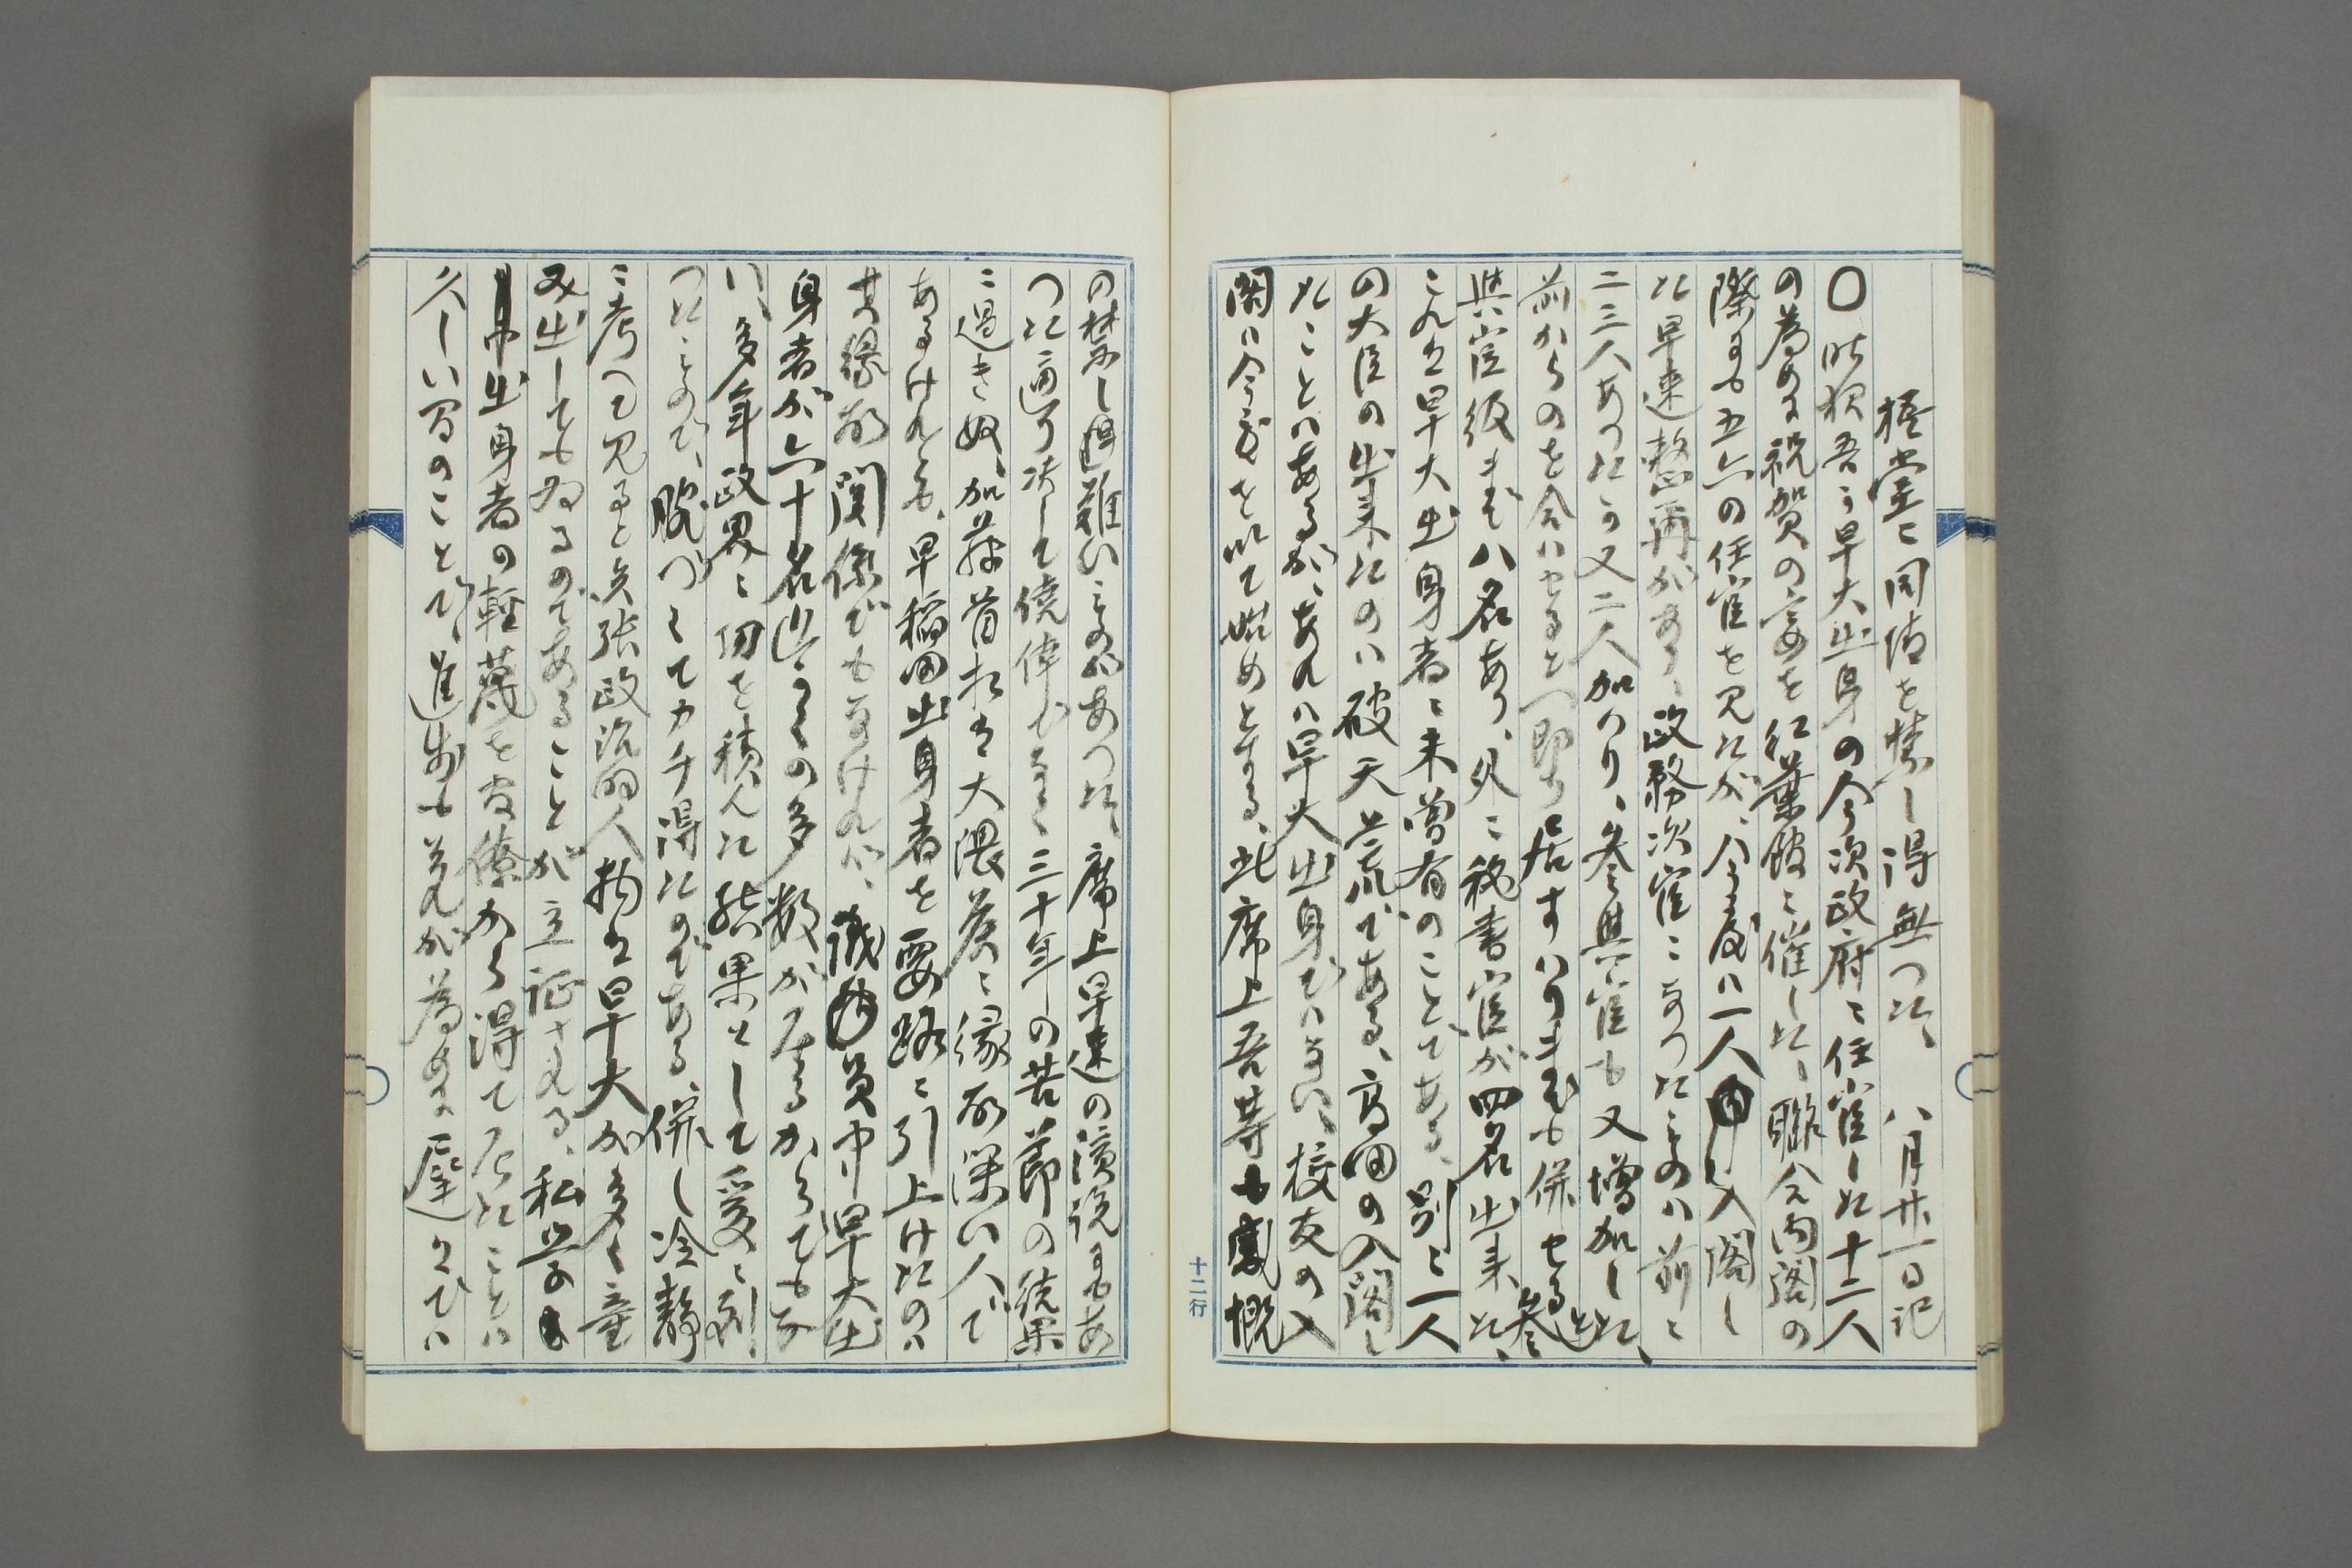 梧堂ニ同情を禁し得無つた、　八月廿一日記
〇昨夜吾々早大出身の今次政府ニ任官した十二人
の為めに祝賀の宴を紅葉館ニ催した、聯合内閣の
際にも五六の任官を見たが、今度ハ一人入閣し
た早速整爾がある、政務次官ニなつたものハ前ニ
二三人あつたのニ又二人加ハり、参與官も又増加した、
前からのを合ハせると(即ち居すハりまでも併せると)参
與官級まで八名あり、外ニ秘書官が四名出来た、
これは早大出身者ニ未曽有のことである、別ニ一人
の大臣の出来たのハ破天荒である、高田の入閣し
たことハあるが、あれハ早大出身でハない、校友の入
閣ハ今度を以て始めとする、此席上吾等も感慨
の禁し得難いものがあつた、席上早速の演説にもあ
つた通り決して僥倖でなく三十年の苦節の結果
ニ過き奴、加藤首相は大隈侯ニ縁故深い人で
あるけれども、早稲田出身者を要路ニ引上けたのハ
其縁故関係でもなけれハ、議員中早大出
身者が六十名近くの多数が居るからでもな
い、多年政界ニ功を積んだ結果として爰ニ到
つたもので、腕づくてカチ得たのである、併し冷静
ニ考へて見ると矢張政治的人物は早大が多く産
み出してもゐるのであることが立証される、私学
出身者の軽蔑を官僚から得て居たことハ
久しい間のことで、進歩もそれが為めに遅